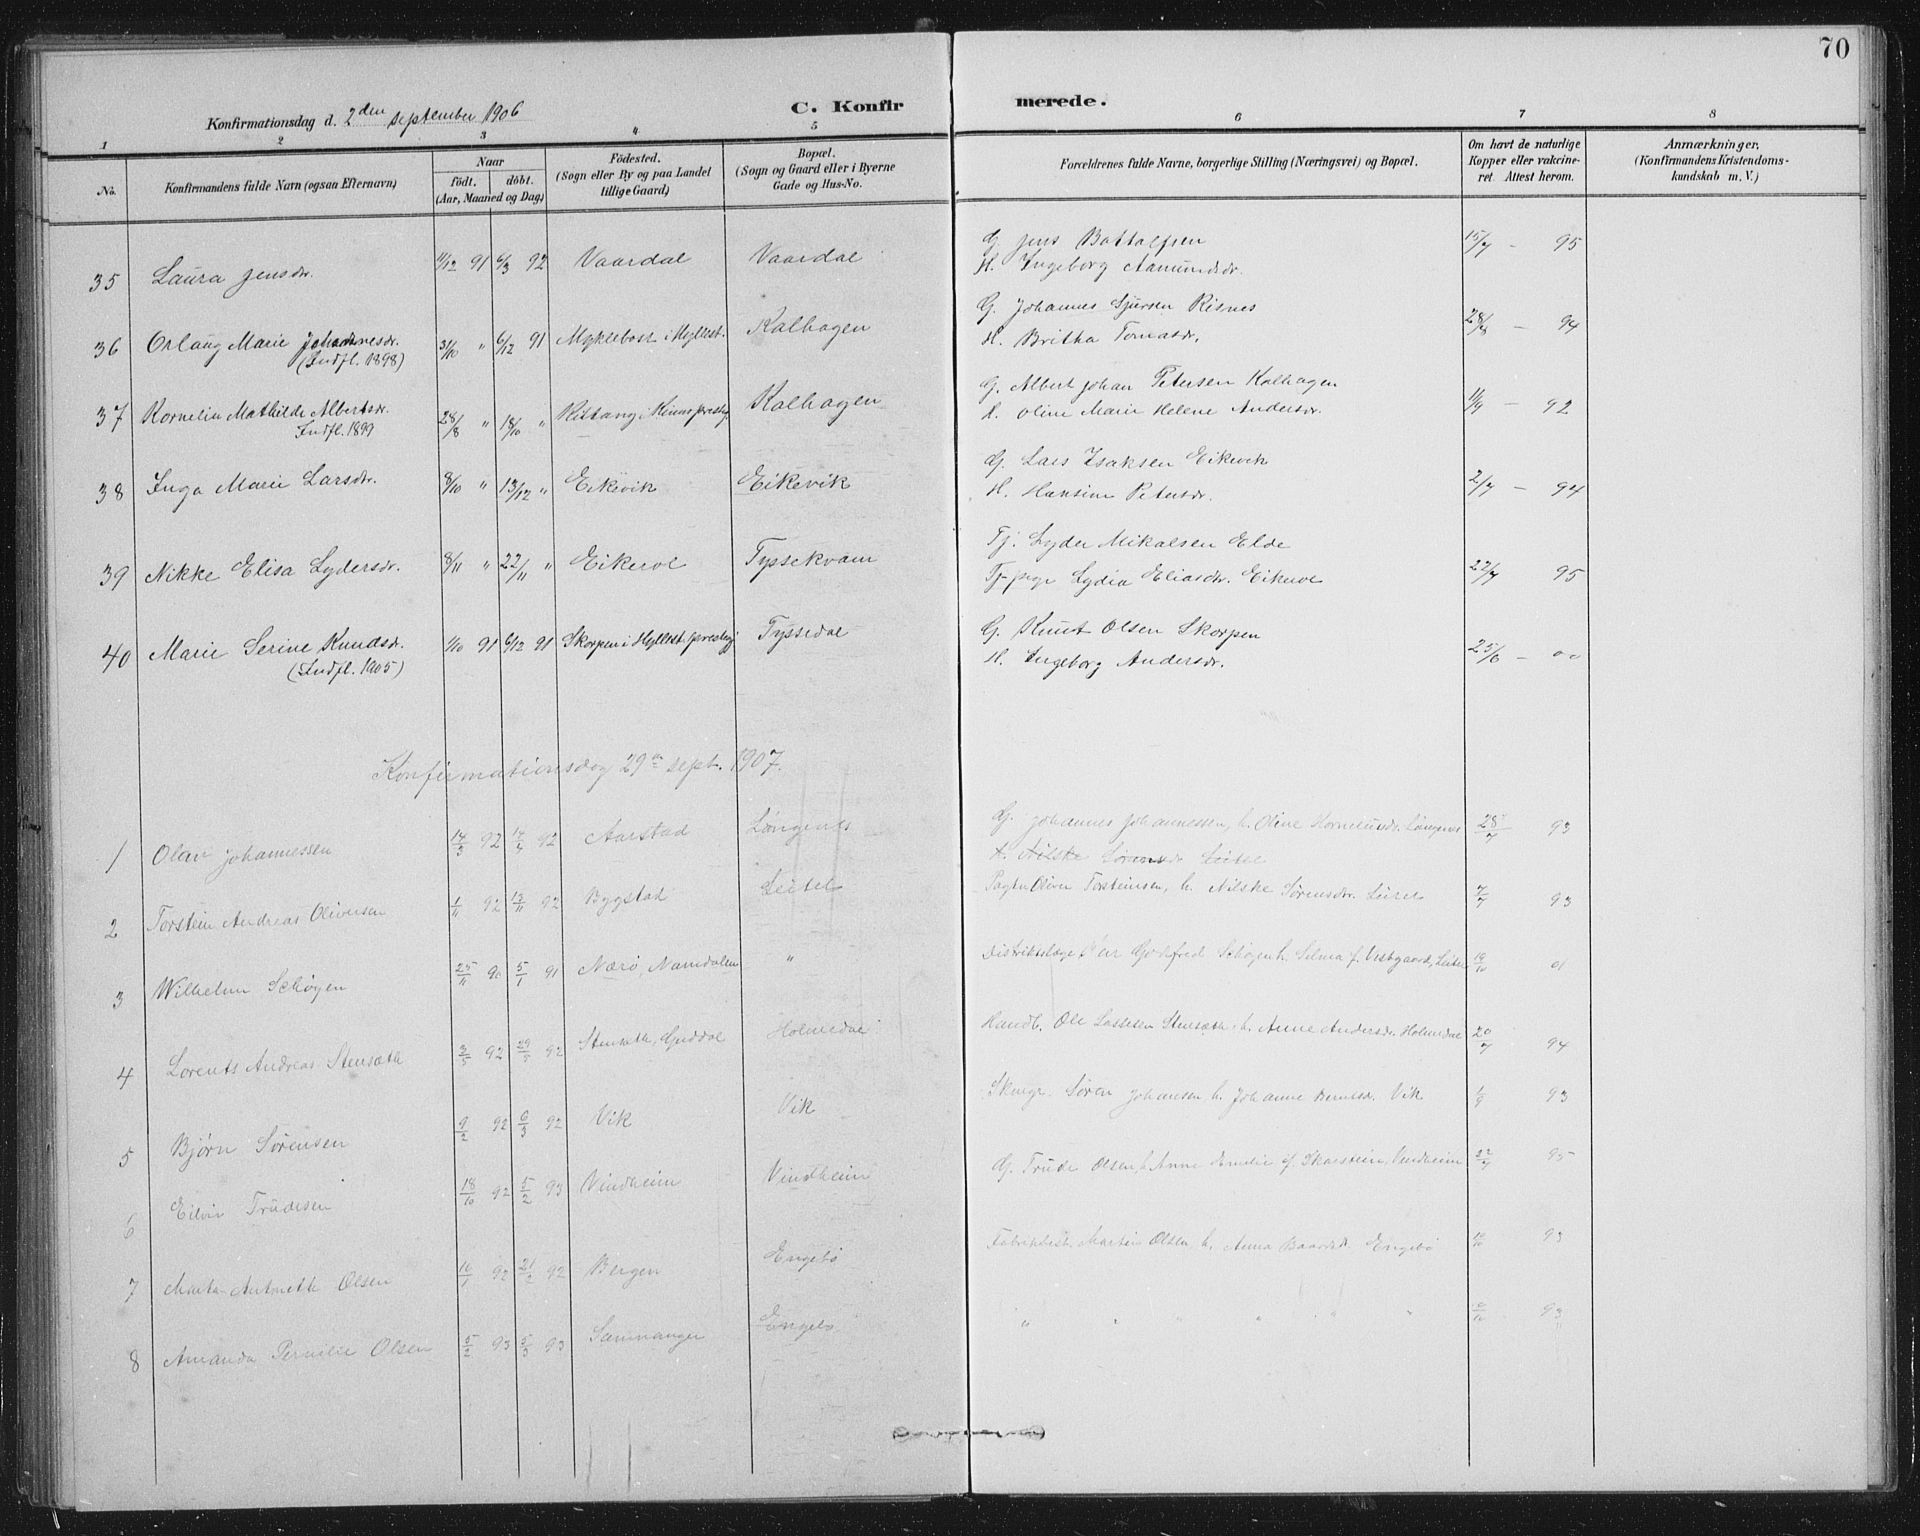 70
C. Konfirmerede.
Konfirmationsdag d. 2den september 1906
1 2 3 4 5 6 7 8
No.
Konfirmandens fulde Navn (ogsaa Efternavn)
Naar
födt. döbt.
(Aar, Maaned og Dag)
Födested.
(Sogn eller By og paa Landet
tillige Gaard)
Bopæl.
(Sogn og Gaard eller i Byerne
Gade og Hus-No.
Forældrenes fulde Navne, borgerlige Stilling (Næringsvei) og Bopæl.
Om havt de naturlige
Kopper eller vakcine-
ret. Attest herom.
Anmærkninger.
(Konfirmandens Kristendoms-
kundskab m. V.)
35 Laura Jensdr. 11/12 91 6/3 92 Vaardal Vaardal G. Jens Bottolfsen 15/7 - 95
H. Ingeborg Aamundsdr.
36 Orlaug Marie Johannesdr. 31/10 " 6/12 91 Myklebost i Hyllest. Kalhagen G. Johannes Sjursen Risnes 28/8 - 94
(Indfl. 1898) H. Britha Tomasdr.
37 Kornelia Mathilde Albertsdr. 28/8 " 18/10 " i Kinns presteg. Kalhagen G. Albert Johan Petersen Kalhagen 1/9 - 92
Indfl. 1899 H. Oline Marie Helene Andersdr.
38 Inga Marie Larsdr. 8/10 " 13/12 " Eikevik Eikevik G. Lars Isaksen Eikevik 2/7 - 94
H. Hansine Petersdr.
39 Nikke Elisa Lydersdr. 8/11 " 22/11 " Eikerol Tyssekvam Tj. Lyder Mikalsen Elde 22/7 95
Tj-pige Lydia Eliasdr. Eikerol
40 Marie Serine Knudsdr. 1/10 91 6/12 91 Skorpen i Hyllest. presteg. Tyssedal G. Knut Olsen Skorpen 25/6 - 00
(Indfl. 1905) H. Ingeborg Andersdr.
Konfirmationsdag 29de sept. 1907.
1 Olav Johannessen 14/3 92 92 Aarstad Længenes G. Johannes Johannessen, h. Oline Korneliusdr. Længenes 28/7 93
h. Nilske Sørensdr Leitel
2 Torstein Andreas Oliversen 1/11 92 13/11 92 Bygstad Leitel Oliver Torsteinsen, h. Nilske Sørensdr. Leitel 93
3 Wilhelm Schøyen 25/11 90 5/1 91 Nærø, Namdalen " Distriktslæge Godtfred Schøyen h. Selma f. Vestgaard, Leitel
4 Lorents Andreas Stensæth 3/5 92 29/5 92 Stensæth, Guddal Holmedal Handl. Ole Lassesen Stensæth, h. Anne Andersdr. Holmedal 20/7 94
5 Bjørn Sørensen 9/2 92 6/3 92 Vik Vik Søren Johansen, h. Johanne Berntsdr. Vik 93
6 Eilin Trudesen 18/10 92 5/2 93 Vindheim Vindheim G. Trude Olsen, h. Anne Emelie f. Skarstein, Vindheim 22/7 95
7 Marta Antonette Olsen 16/1 92 21/2 92 Bergen Engebø Fabrikbest. Martin Olsen, h. Anna Baardsdr. Engebø 93
8 Amanda Pernilie Olsen 5/2 93 5/3 93 Samnanger Engebø " " " " " " 93